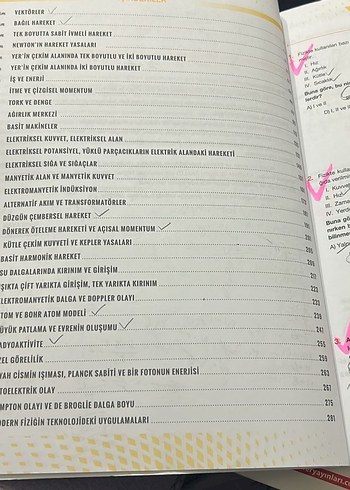 VEKTÖRLER
BAĞIL HAREKET
TEK BOYUTTA SABİT İVMELİ HAREKET
NEWTON'IN HAREKET YASALARI
YER'İN ÇEKİM ALANINDA TEK BOYUTLU VE İKİ BOYUTLU HAREKET
YER'İN ÇEKİM ALANINDA İKİ BOYUTLU HAREKET
İŞ VE ENERJİ
İTME VE ÇİZGİSEL MOMENTUM
TORK VE DENGE
AĞIRLIK MERKEZİ
BASİT MAKİNELER
ELEKTRİKSEL KUVVET, ELEKTRİKSEL ALAN
ELEKTRİKSEL POTANSİYEL, YÜKLÜ PARÇACIKLARIN ELEKTRİK ALANDAKİ HAREKETİ
ELEKTRİKSEL SIĞA VE SIĞAÇLAR
MANYETİK ALAN VE MANYETİK KUVVET
ELEKTROMANYETİK İNDÜKSİYON
ALTERNATİF AKIM VE TRANSFORMATÖRLER
DÜZGÜN ÇEMBERSEL HAREKET
DÖNEREK ÖTELEME HAREKETİ VE AÇISAL MOMENTUM
KÜTLE ÇEKİM KUVVETİ VE KEPLER YASALARI
BASİT HARMONİK HAREKET
SU DALGALARINDA KIRINIM VE GİRİŞİM
IŞIKTA ÇİFT YARIKTA GİRİŞİM, TEK YARIKTA KIRINIM
ELEKTROMANYETİK DALGA VE DOPPLER OLAYI
TOM VE BOHR ATOM MODELİ 239
ÜYÜK PATLAMA VE EVRENİN OLUŞUMU 247
ADYOAKTİVİTE 255
ZEL GÖRELİLİK 259
YAH CİSMİN IŞIMASI, PLANCK SABİTİ VE BİR FOTONUN ENERJİSİ 263
TOELEKTRİK OLAY 267
MPTON OLAYI VE DE BROGLIE DALGA BOYU 275
ODERN FİZİĞİN TEKNOLOJİDEKİ UYGULAMALARI 281
Fizikte kullanılan bazı
I. Hız
II. Ağırlık
III. Kütle
IV. Sıcaklık
Buna göre, bu ni
A) I ve II
D) I, II ve
2. Fizikte kulla
I. Kuvvet
II. Hız
III. Zama
IV. Yerd
Buna gö
bilinme
A) Yalnı
3.
yayınları.c